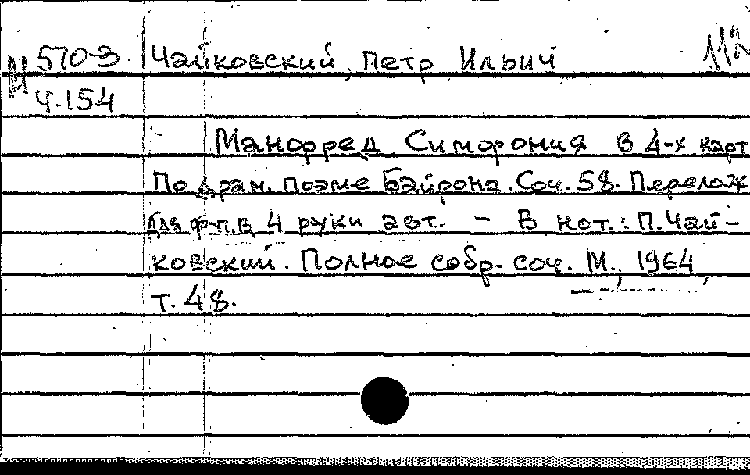 М 570-3 Чайковский, Петр Ильич 112
Ч.154
Манфред Симфония в 4-х карт
По драм. поэме Байрона. Соч. 58. Перелож
для ф-п. в 4 руки авт. - В нот.: П. Чай-
ковский. Полное собр. соч. М., 1964,
т. 48.